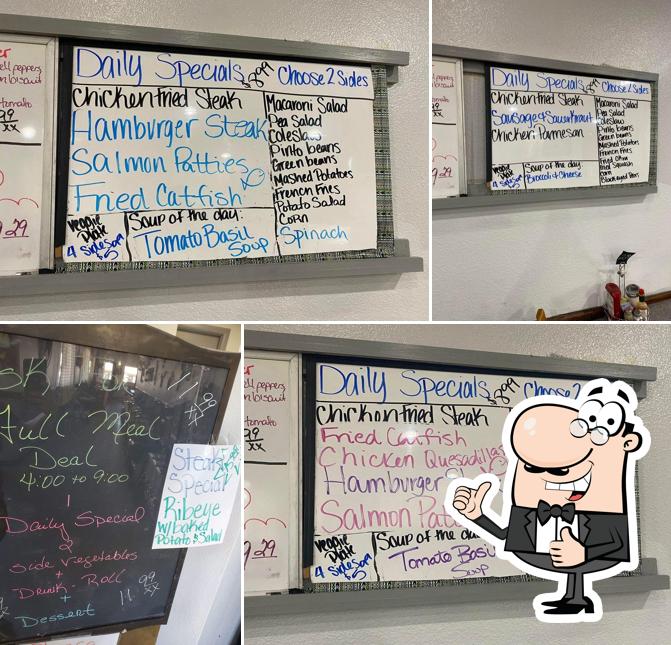 Daily Specials $8.99
Choose 2 Sides
Chicken Fried Steak
Hamburger Steak
Salmon Patties
Fried Catfish
Macaroni Salad
Pea Salad
Coleslaw
Pinto beans
Green beans
Mashed Potatoes
French Fries
Potato Salad
Corn
Spinach
Veggie
Plate
4 Sides
$5
Soup of the day:
Tomato Basil
Soup
Daily Specials
Choose 2 Sides
Chicken Fried Steak
Sausage & Sauerkraut
Chicken Parmesan
Macaroni Salad
Pea Salad
Coleslaw
Pinto Beans
Green beans
Mashed Potatoes
French Fries
Fried Okra
Corn
Veggie
Plate
Soup of the day:
Broccoli & Cheese
Full Meal
Deal
4:00 to 9:00
1
Daily Special
2
Side Vegetables
+
Drink - Roll
+
Dessert
11.99
Steak
Special
Ribeye
w/baked
Potato & Salad
Daily Specials $8.99
Choose 2
Chicken Fried Steak
Fried Catfish
Chicken Quesadilla
Hamburger
Salmon Patt
Veggie
Plate
4 Sides
$5
Soup of the da
Tomato Basi
Soup